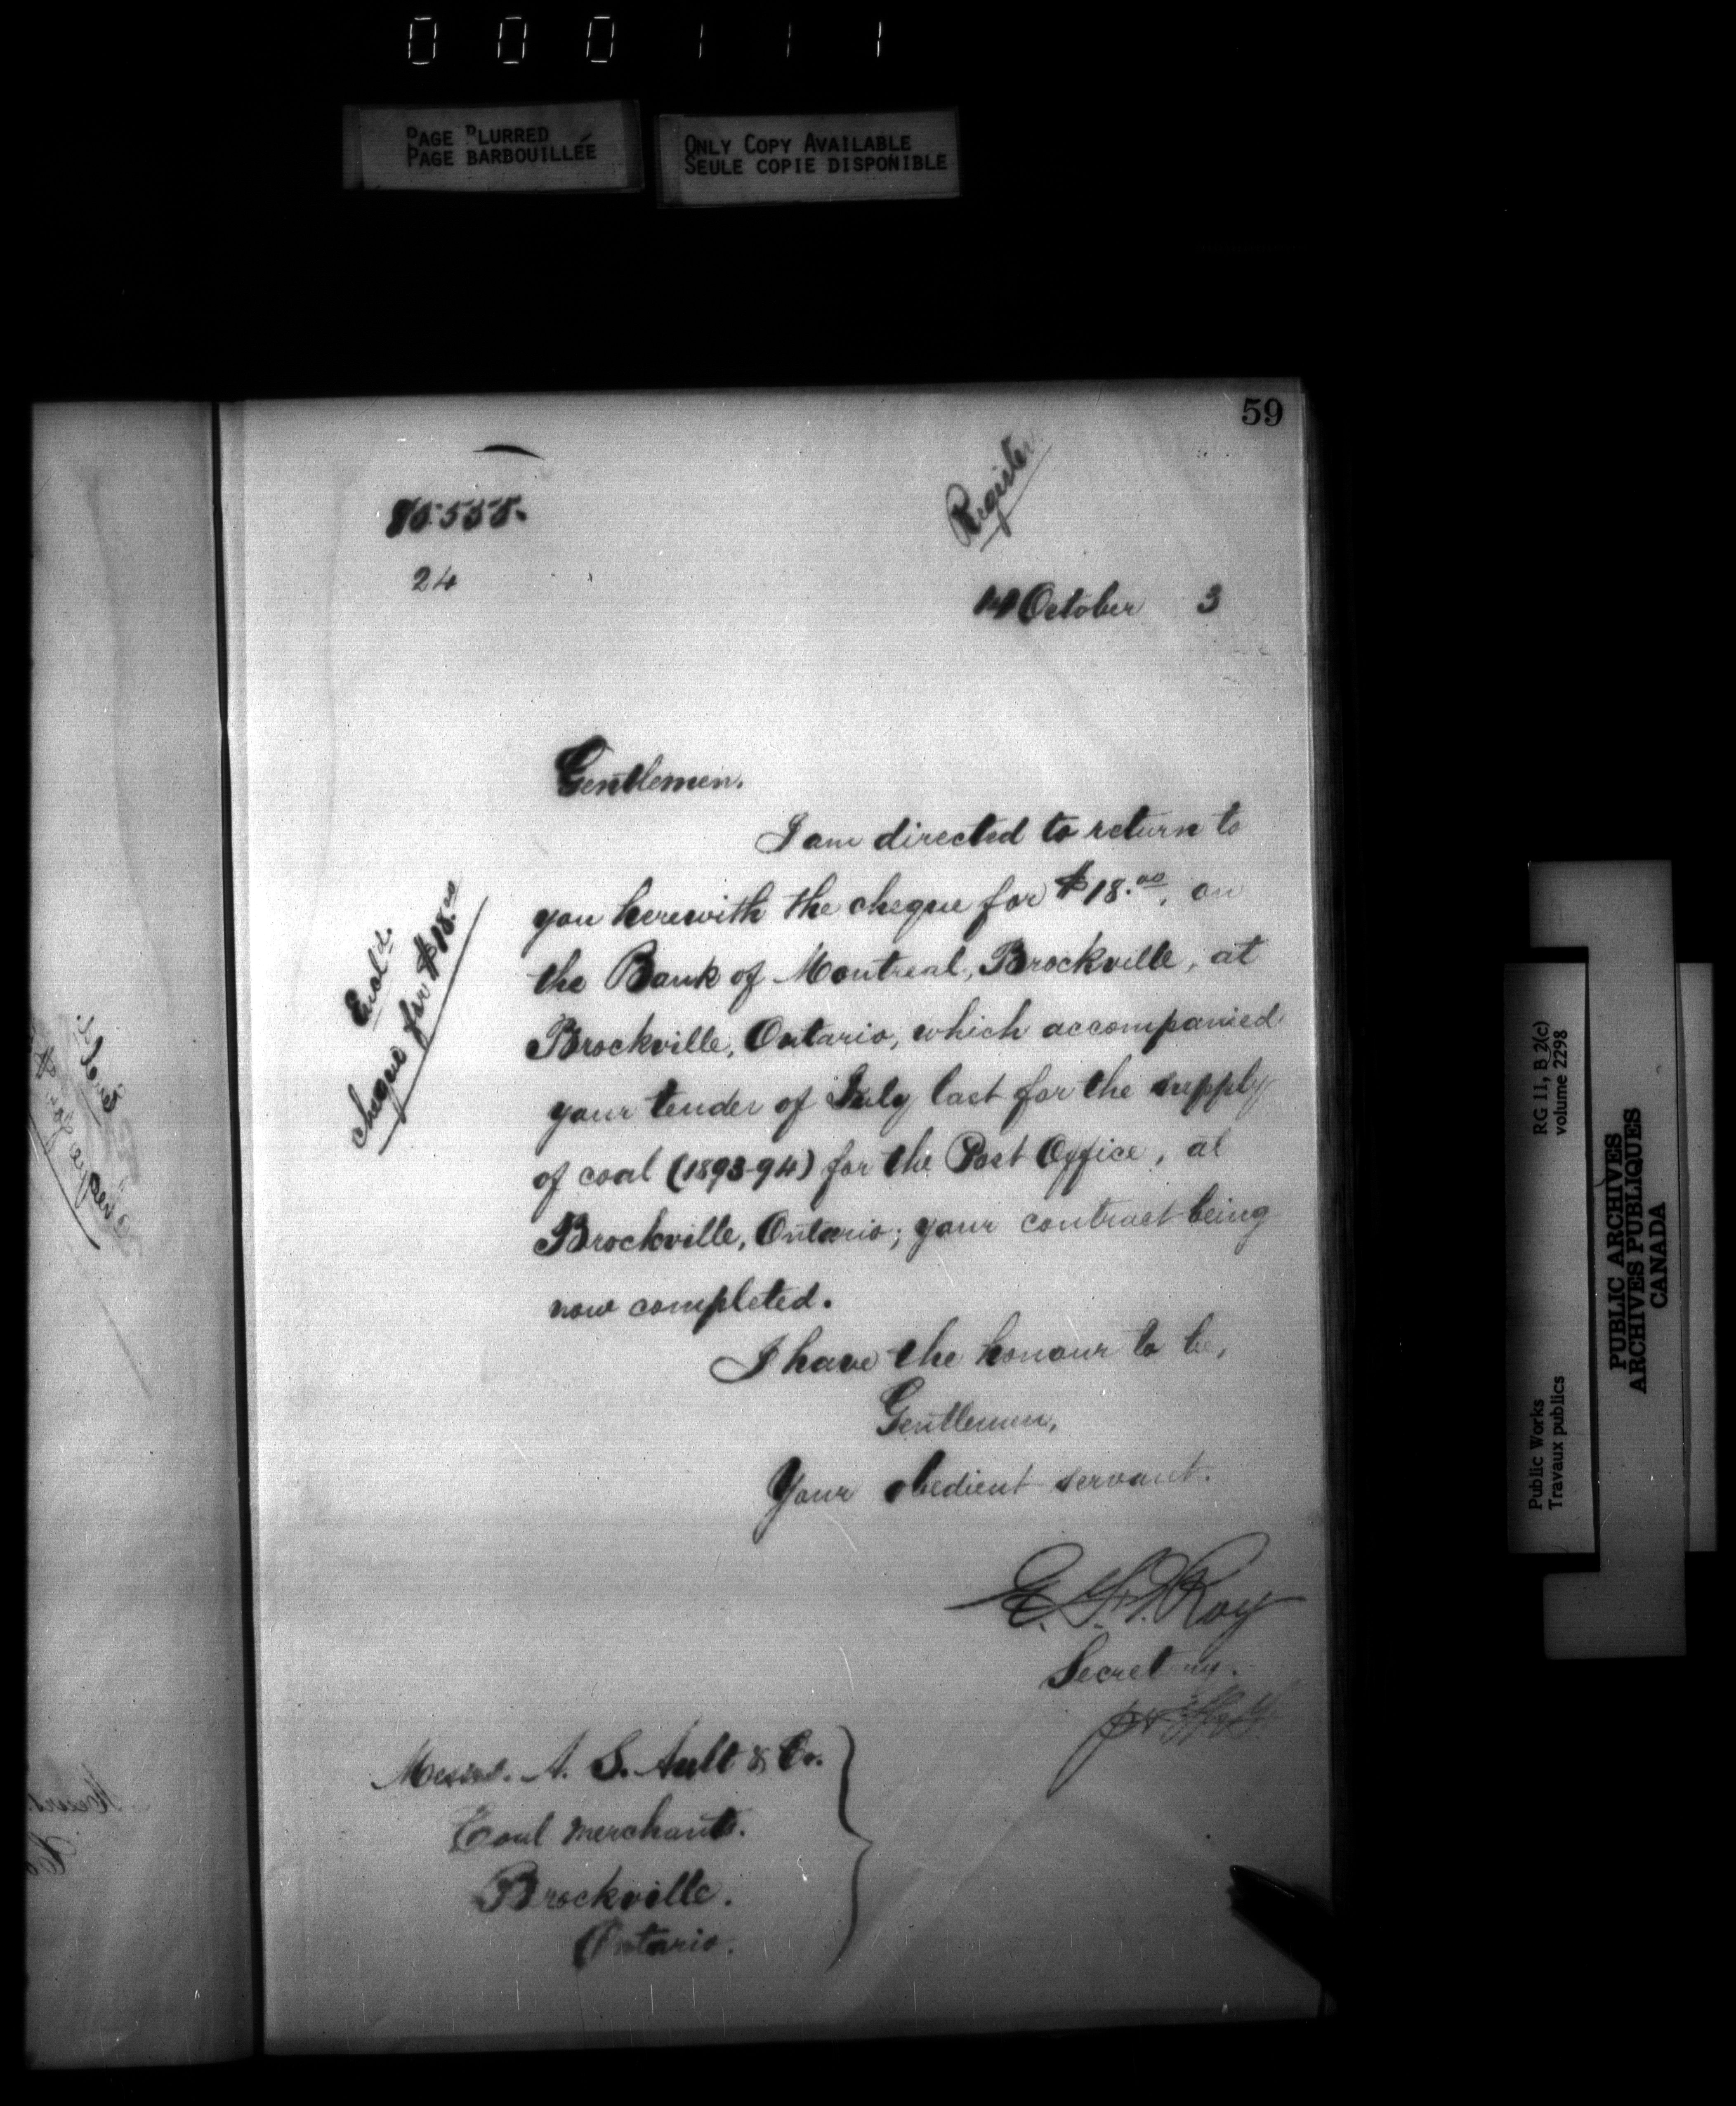 000111
PAGE BLURRED
PAGE BARBOUILLÉE
ONLY COPY AVAILABLE
SEULE COPIE DISPONIBLE
59
Register
24
October 3
Gentlemen.
I am directed to return to
you herewith the cheque for $18.00, on
the Bank of Montreal, Brockville, at
Brockville, Ontario, which accompanied
your tender of July last for the supply
of coal (1893-94) for the Post Office, at
Brockville, Ontario; your contract being
now completed.
I have the honour to be,
Gentlemen,
Your obedient servant.
E. F. E. Roy
Secretary.
Encl'd.
cheque for $18.00
Messrs. A. S. Ault & Co.
Coal Merchants.
Brockville.
Ontario.
RG 11, B 2(c)
volume 2298
Public Works
Travaux publics
PUBLIC ARCHIVES
ARCHIVES PUBLIQUES
CANADA